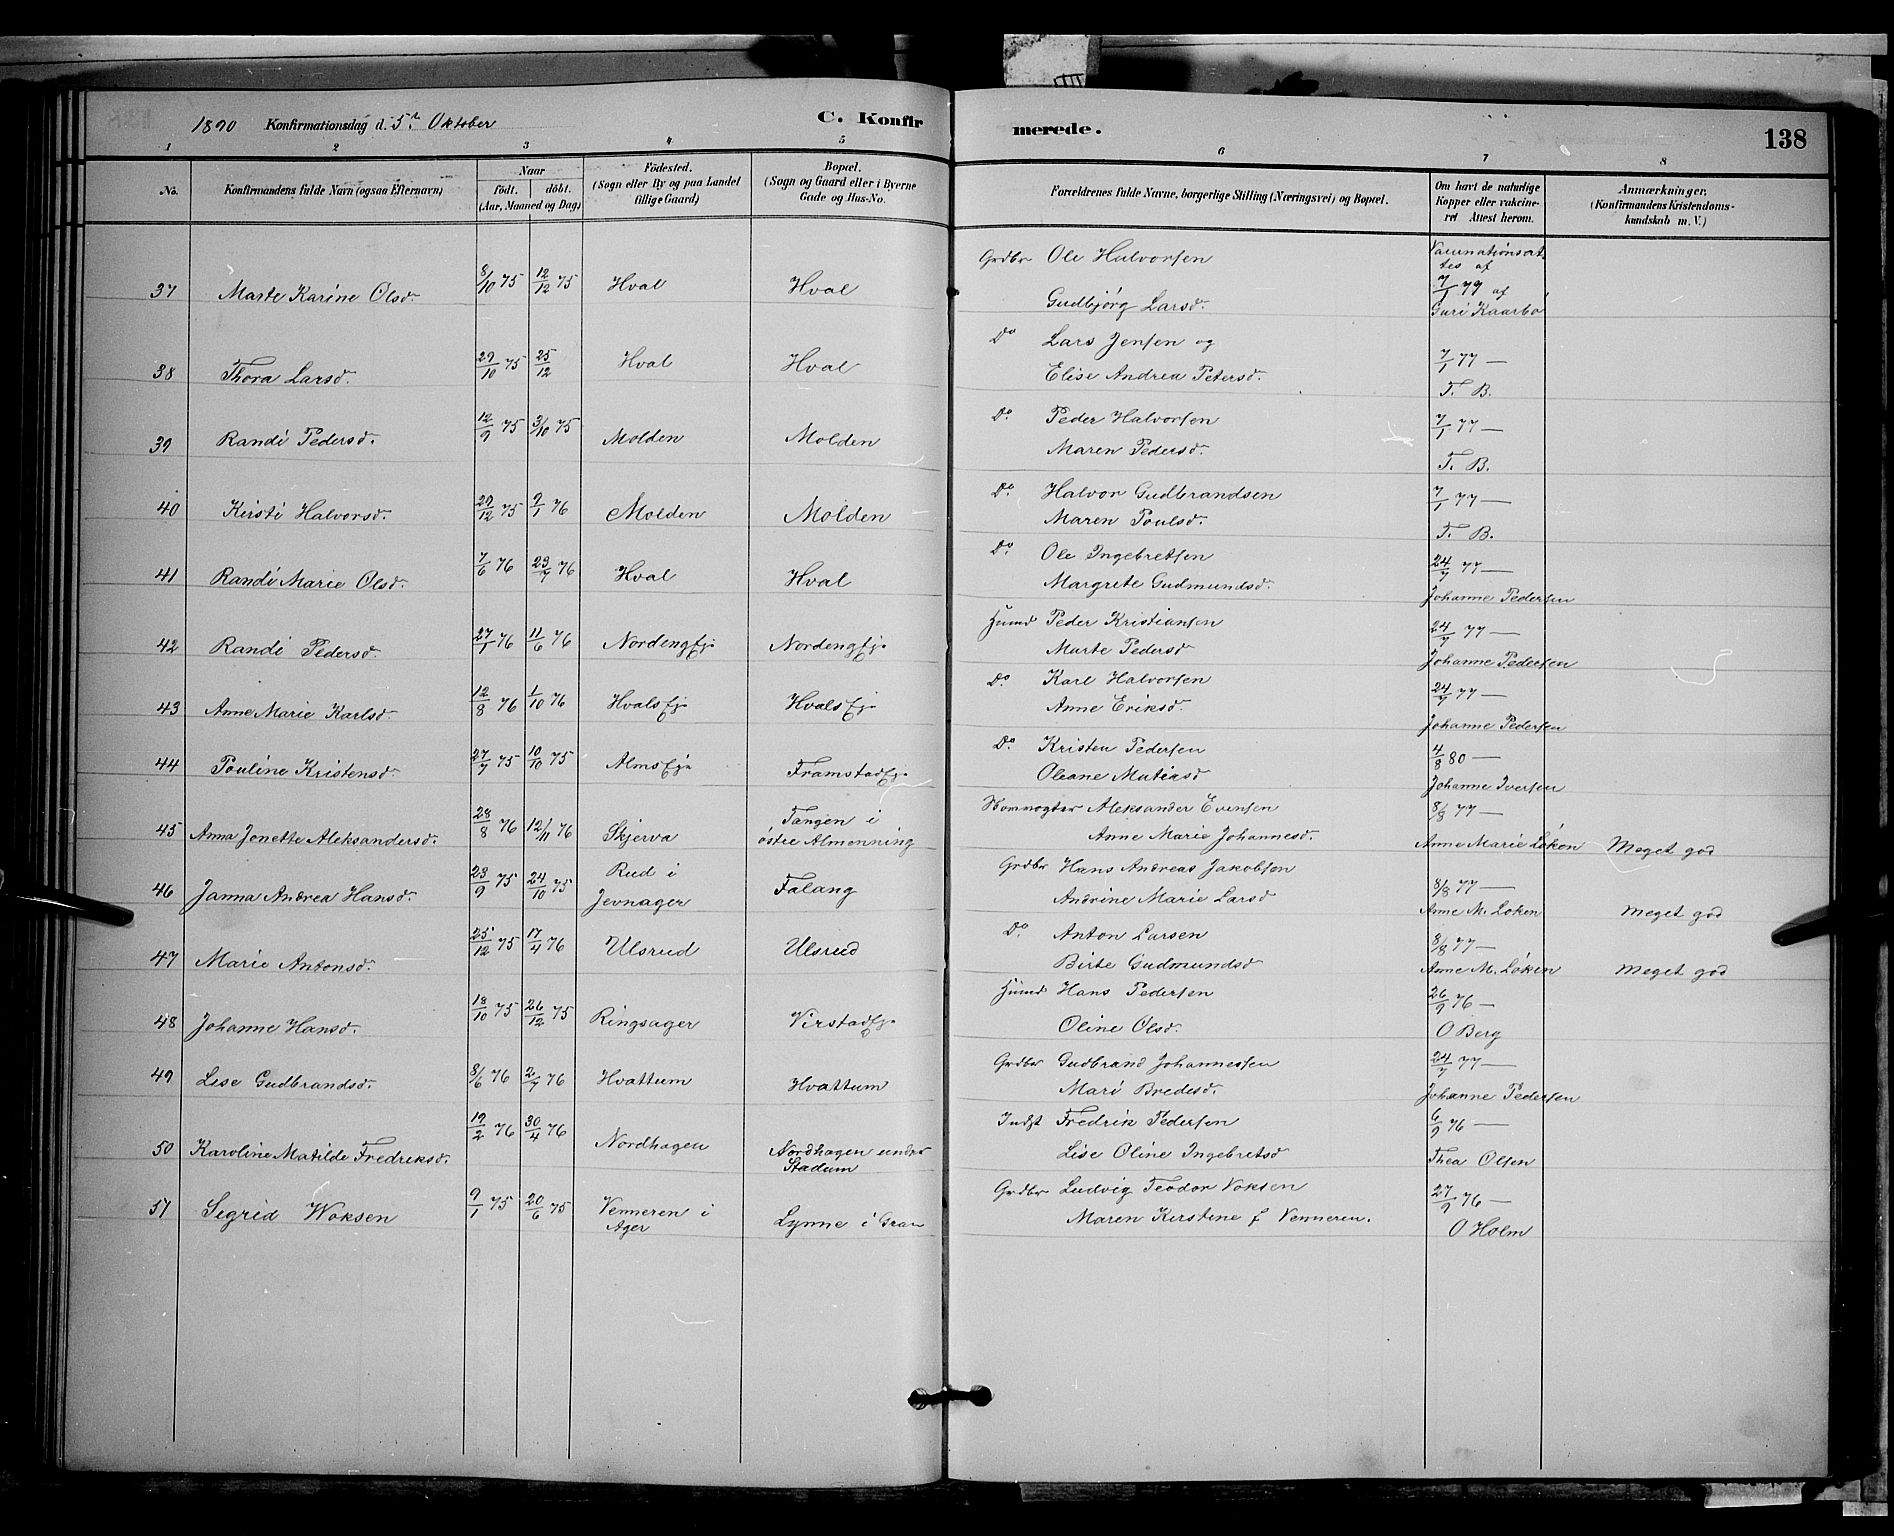 1890 Konfirmationsdag d. 5te Oktober C. Konfirmerede. 138
1 2 3 4 5 6 7 8
No. Konfirmandens fulde Navn (ogsaa Efternavn) Naar födt. döbt. (Aar, Maaned og Dag) Födested. (Sogn eller By og paa Landet tillige Gaard) Bopæl. (Sogn og Gaard eller i Byerne Gade og Hus-No. Forældrenes fulde Navne, borgerlige Stilling (Næringsvei) og Bopæl. Om havt de naturlige Kopper eller vakcineret Attest herom. Anmærkninger. (Konfirmandens Kristendomskundskab m. V.)
37 Marte Karine Olsd. 8/10 75 12/12 75 Hval Hval Grdbr Ole Halvorsen Gudbjørg Larsd. 7/1 79 af Guri Kaarbø
38 Thora Larsd. 29/10 75 25/12 Hval Hval Do Lars Jensen og Elise Andrea Petersd. 7/1 77 — T. B.
39 Randi Pedersd. 12/9 75 3/10 75 Molden Molden Do. Peder Halvorsen Maren Pedersd. 7/1 77 — T. B.
40 Kirsti Halvorsd. 29/12 75 9/1 76 Molden Molden Do. Halvor Gudbrandsen Maren Poulsd. 7/1 77 — T. B.
41 Randi Marie Olsd. 7/6 76 23/7 76 Hval Hval Do. Ole Ingebretsen Margrete Gudmundsd. 24/7 77 — Johanne Pedersen
42 Randi Pedersd. 27/1 76 11/6 76 Nordengej. Nordengej. Husmd Peder Kristiansen Marte Pedersd 24/7 77 — Johanne Pedersen
43 Anne Marie Karlsd. 12/8 76 1/10 76 Hvalsej. Hvalsej. Do. Karl Halvorsen Anne Eriksd. 24/7 77 — Johanne Pedersen
44 Pouline Kristensd. 27/7 75 10/10 75 Almsej. Framstadej. Do. Kristen Pedersen Oleane Matiasd 4/8 80 — Johanne Iversen
45 Anna Jonette Aleksandersd. 28/8 76 12/11 76 Skjerva Tangen i østre Almenning Aleksander Evensen Anne Marie Johannesd. 8/8 77 — Anne Marie Løken Meget god
46 Janna Andrea Hansd. 23/9 75 24/10 75 Rud i Jevnager Falang Grdbr Hans Andreas Jakobsen Andrine Marie Larsd 8/8 77 — Anne M. Løken meget god
47 Marie Antonsd. 25/12 75 17/4 76 Ulsrud Ulsrud Do. Anton Larsen Birte Gudmundsd 8/8 77 — Anne M. Løken meget god
48 Johanne Hansd. 18/10 75 26/12 75 Ringsager Virstadej. Husmd Hans Pedersen Oline Olsd. 26/9 76 — O Berg
49 Lise Gudbrandsd. 8/6 76 2/7 76 Hvattum Hvattum Grdbr Gudbrand Johannessen Mari Bredesd. 24/7 77 — Johanne Pedersen
50 Karoline Matilde Fredriksd. 19/2 76 30/4 76 Nordhagen Nordhagen under Stadum Indst Fredrik Pedersen Lise Oline Ingebretsd 6/9 76 — Thea Olsen
51 Sigrid Woksen 9/1 75 20/6 75 Venneren i Ager Lynne i Gran Grdbr Ludvig Teodor Voksen Maren Kirstine f Venneren. 27/9 76 — O Holm